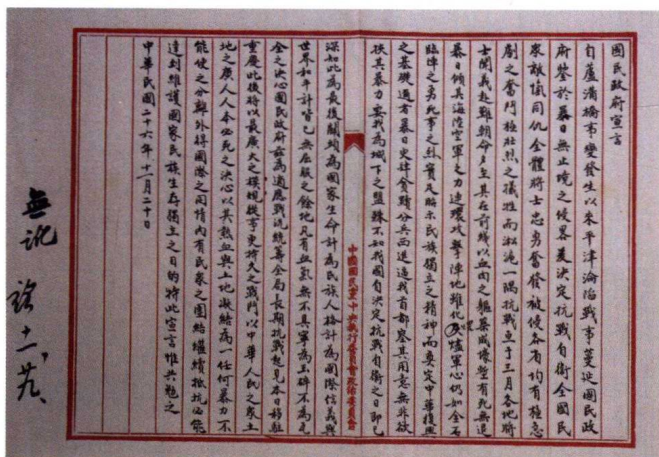 國民政府宣言
自蘆溝橋事變發生以來平津淪陷戰事蔓延國民政
府鑒於暴日無止境之侵畧爰決定抗戰自衛全國民
眾敵愾同仇全體將士忠勇奮發被侵各省均有極急
劇之奮鬥極壯烈之犧牲而淞滬一隅抗戰亙于三月各地將
士聞義赴難朝命夕至其在前線以血肉之軀築成壕塹有死無退
暴日傾其海陸空軍之力連環攻擊陣地雖化灰燼軍心仍如金石
臨陣之勇死事之烈實足昭示民族獨立之精神而奠定中華復興
之基礎邇者暴日更肆貪黷分兵西進逼我首都察其用意無非欲
挾其暴力要我為城下之盟殊不知我國自決定抗戰自衛之日即已
中國國民黨中央執行委員會政治委員會
深知此為最後關頭為國家生命計為民族人格計為國際信義與
世界和平計皆已無屈服之餘地凡有血氣無不具寧為玉碎不為瓦
全之決心國民政府茲為適應戰況統籌全局長期抗戰起見本日移駐
重慶此後將以最廣大之規模從事更持久之戰鬥以中華人民之眾土
地之廣人人本必死之決心以其熱血與土地凝結為一任何暴力不
能使之分離外得國際之同情內有民眾之團結繼續抵抗必能
達到維護國家民族生存獨立之目的特此宣言惟共勉之
中華民國二十六年十一月二十日
無訛 十一、廿九、